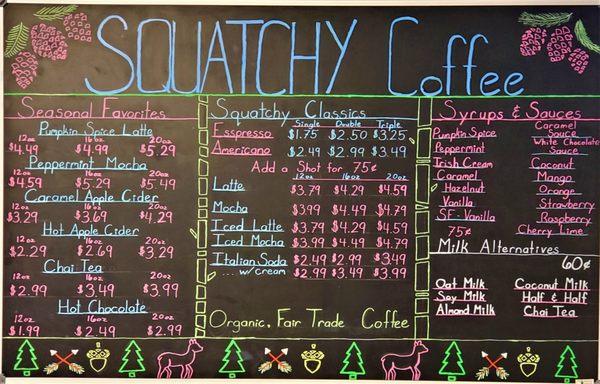 SQUATCHY Coffee
Seasonal Favorites
Pumpkin Spice Latte
12oz 16oz 20oz
$4.49 $4.99 $5.29
Peppermint Mocha
12oz 16oz 20oz
$4.59 $5.29 $5.49
Caramel Apple Cider
12oz 16oz 20oz
$3.29 $3.69 $4.29
Hot Apple Cider
12oz 16oz 20oz
$2.29 $2.69 $3.29
Chai Tea
12oz 16oz 20oz
$2.99 $3.49 $3.99
Hot Chocolate
12oz 16oz 20oz
$1.99 $2.49 $2.99
Squatchy Classics
Single Double Triple
Esspresso $1.75 $2.50 $3.25
Americano $2.49 $2.99 $3.49
Add a Shot for 75¢
12oz 16oz 20oz
Latte $3.79 $4.29 $4.59
Mocha $3.99 $4.49 $4.79
Iced Latte $3.79 $4.29 $4.59
Iced Mocha $3.99 $4.49 $4.79
Italian Soda $2.49 $2.99 $3.49
... w/cream $2.99 $3.49 $3.99
Organic, Fair Trade Coffee
Syrups & Sauces
Pumpkin Spice
Peppermint
Irish Cream
Caramel
Hazelnut
Vanilla
SF-Vanilla
75¢
Caramel
Sauce
White Chocolate
Sauce
Coconut
Mango
Orange
Strawberry
Raspberry
Cherry Lime
Milk Alternatives
60¢
Oat Milk Coconut Milk
Soy Milk Half & Half
Almond Milk Chai Tea